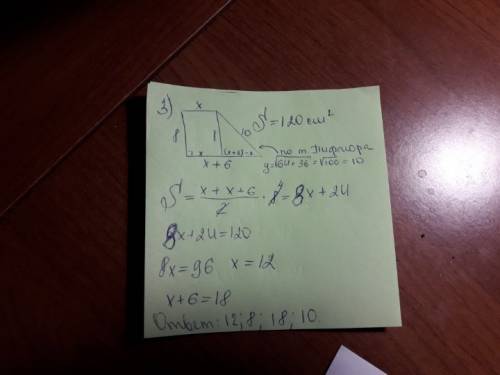 3)
x
8
10
S = 120 см²
x
(x+6)-x
x + 6
по т. Пифагора
y=√64+36 = √100 = 10
S = x + x + 6 / 2 · 8 4 = 8x + 24
8x + 24 = 120
8x = 96 x = 12
x + 6 = 18
Ответ: 12; 8; 18; 10.